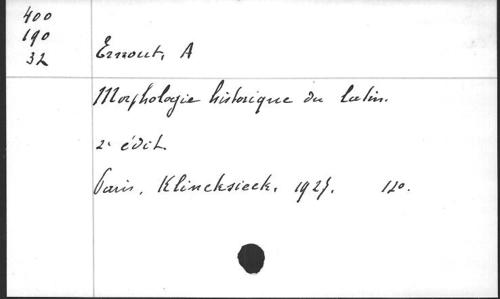 400
190
32
Ernout, A
Morphologie historique du latin.
2e édit.
Paris, Klincksieck, 1927. 120.